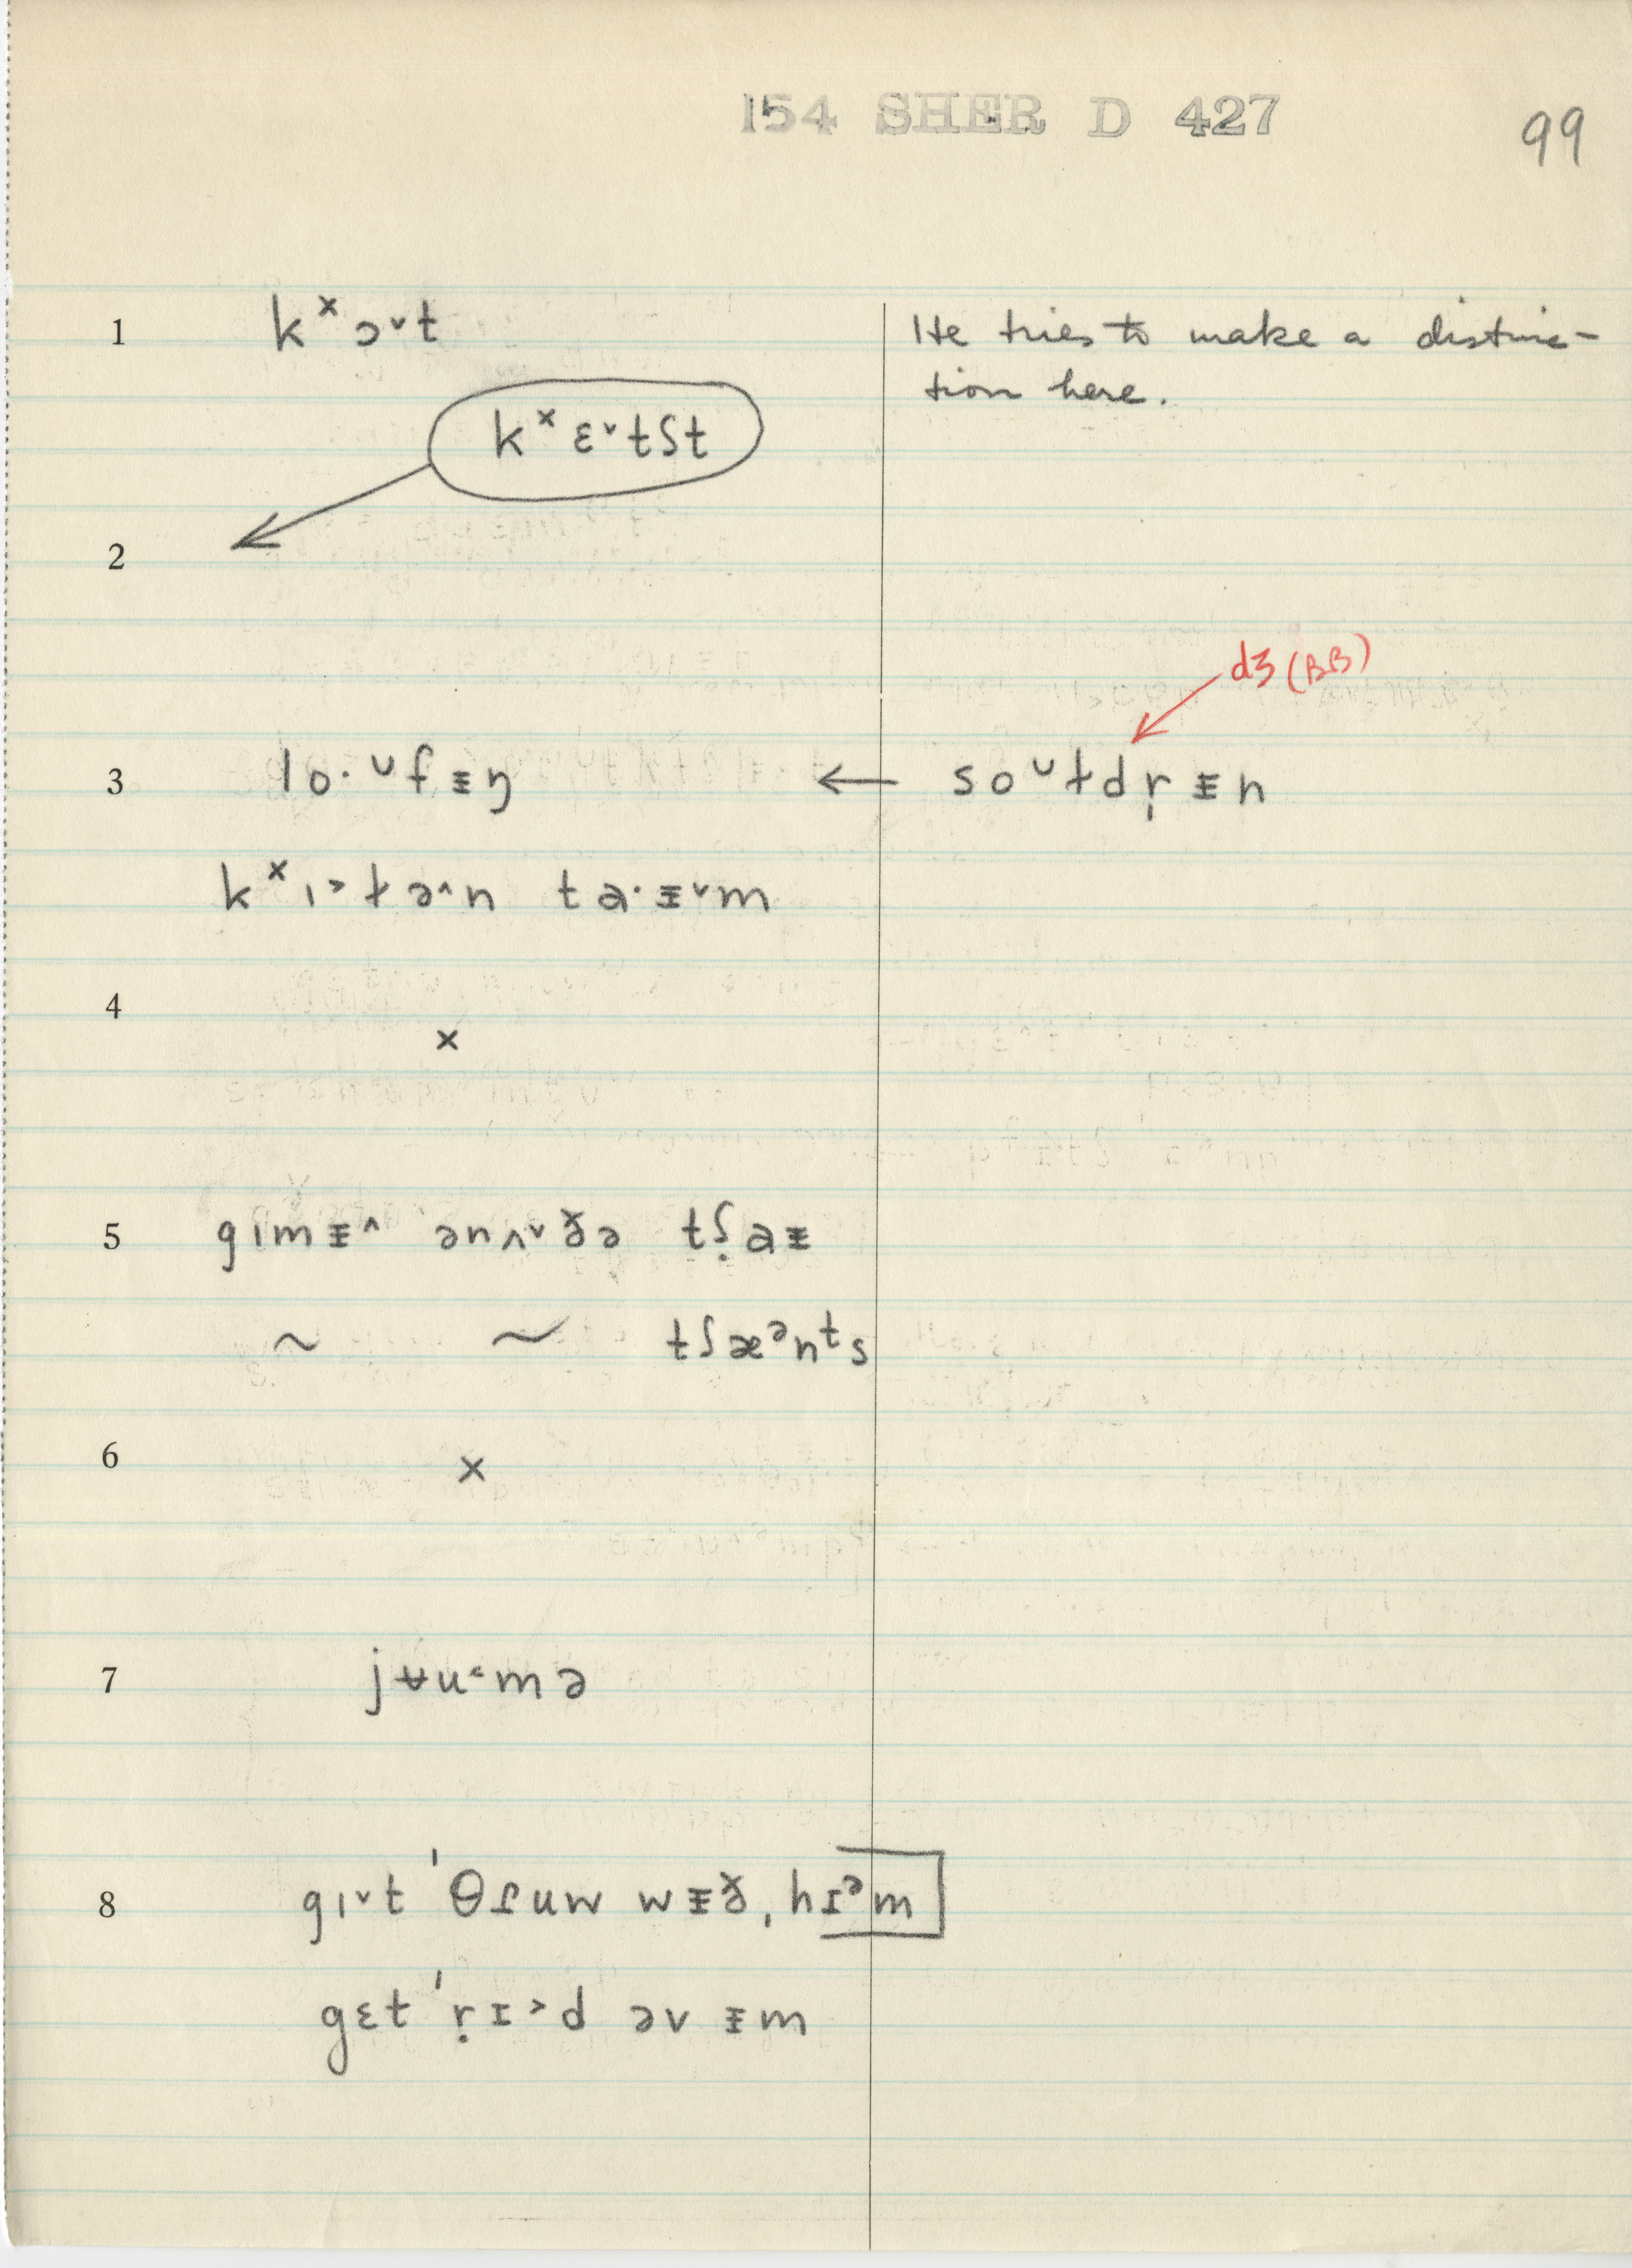 154 SHER D 427
99
1 kˣ ɔ˅t He tries to make a distinc-
tion here.
kˣ ɛ˅tʃt
2
dʒ (BB)
3 lo· ᴗfᵻŋ ← soᴗɫdṛᵻn
kˣı˃ɫə˄n ta·ᵻ˅m
4 x
5 gımᵻ˄ ənʌ˅ðə tʃ̣aᵻ
~ ~ tʃæᵊnᵗs
6 x
7 jʉu˂mə
8 gı˅t ˈθɾuw wᵻð, hɪᵊm
gɛt ˈṛɪ˃d əv ᵻm